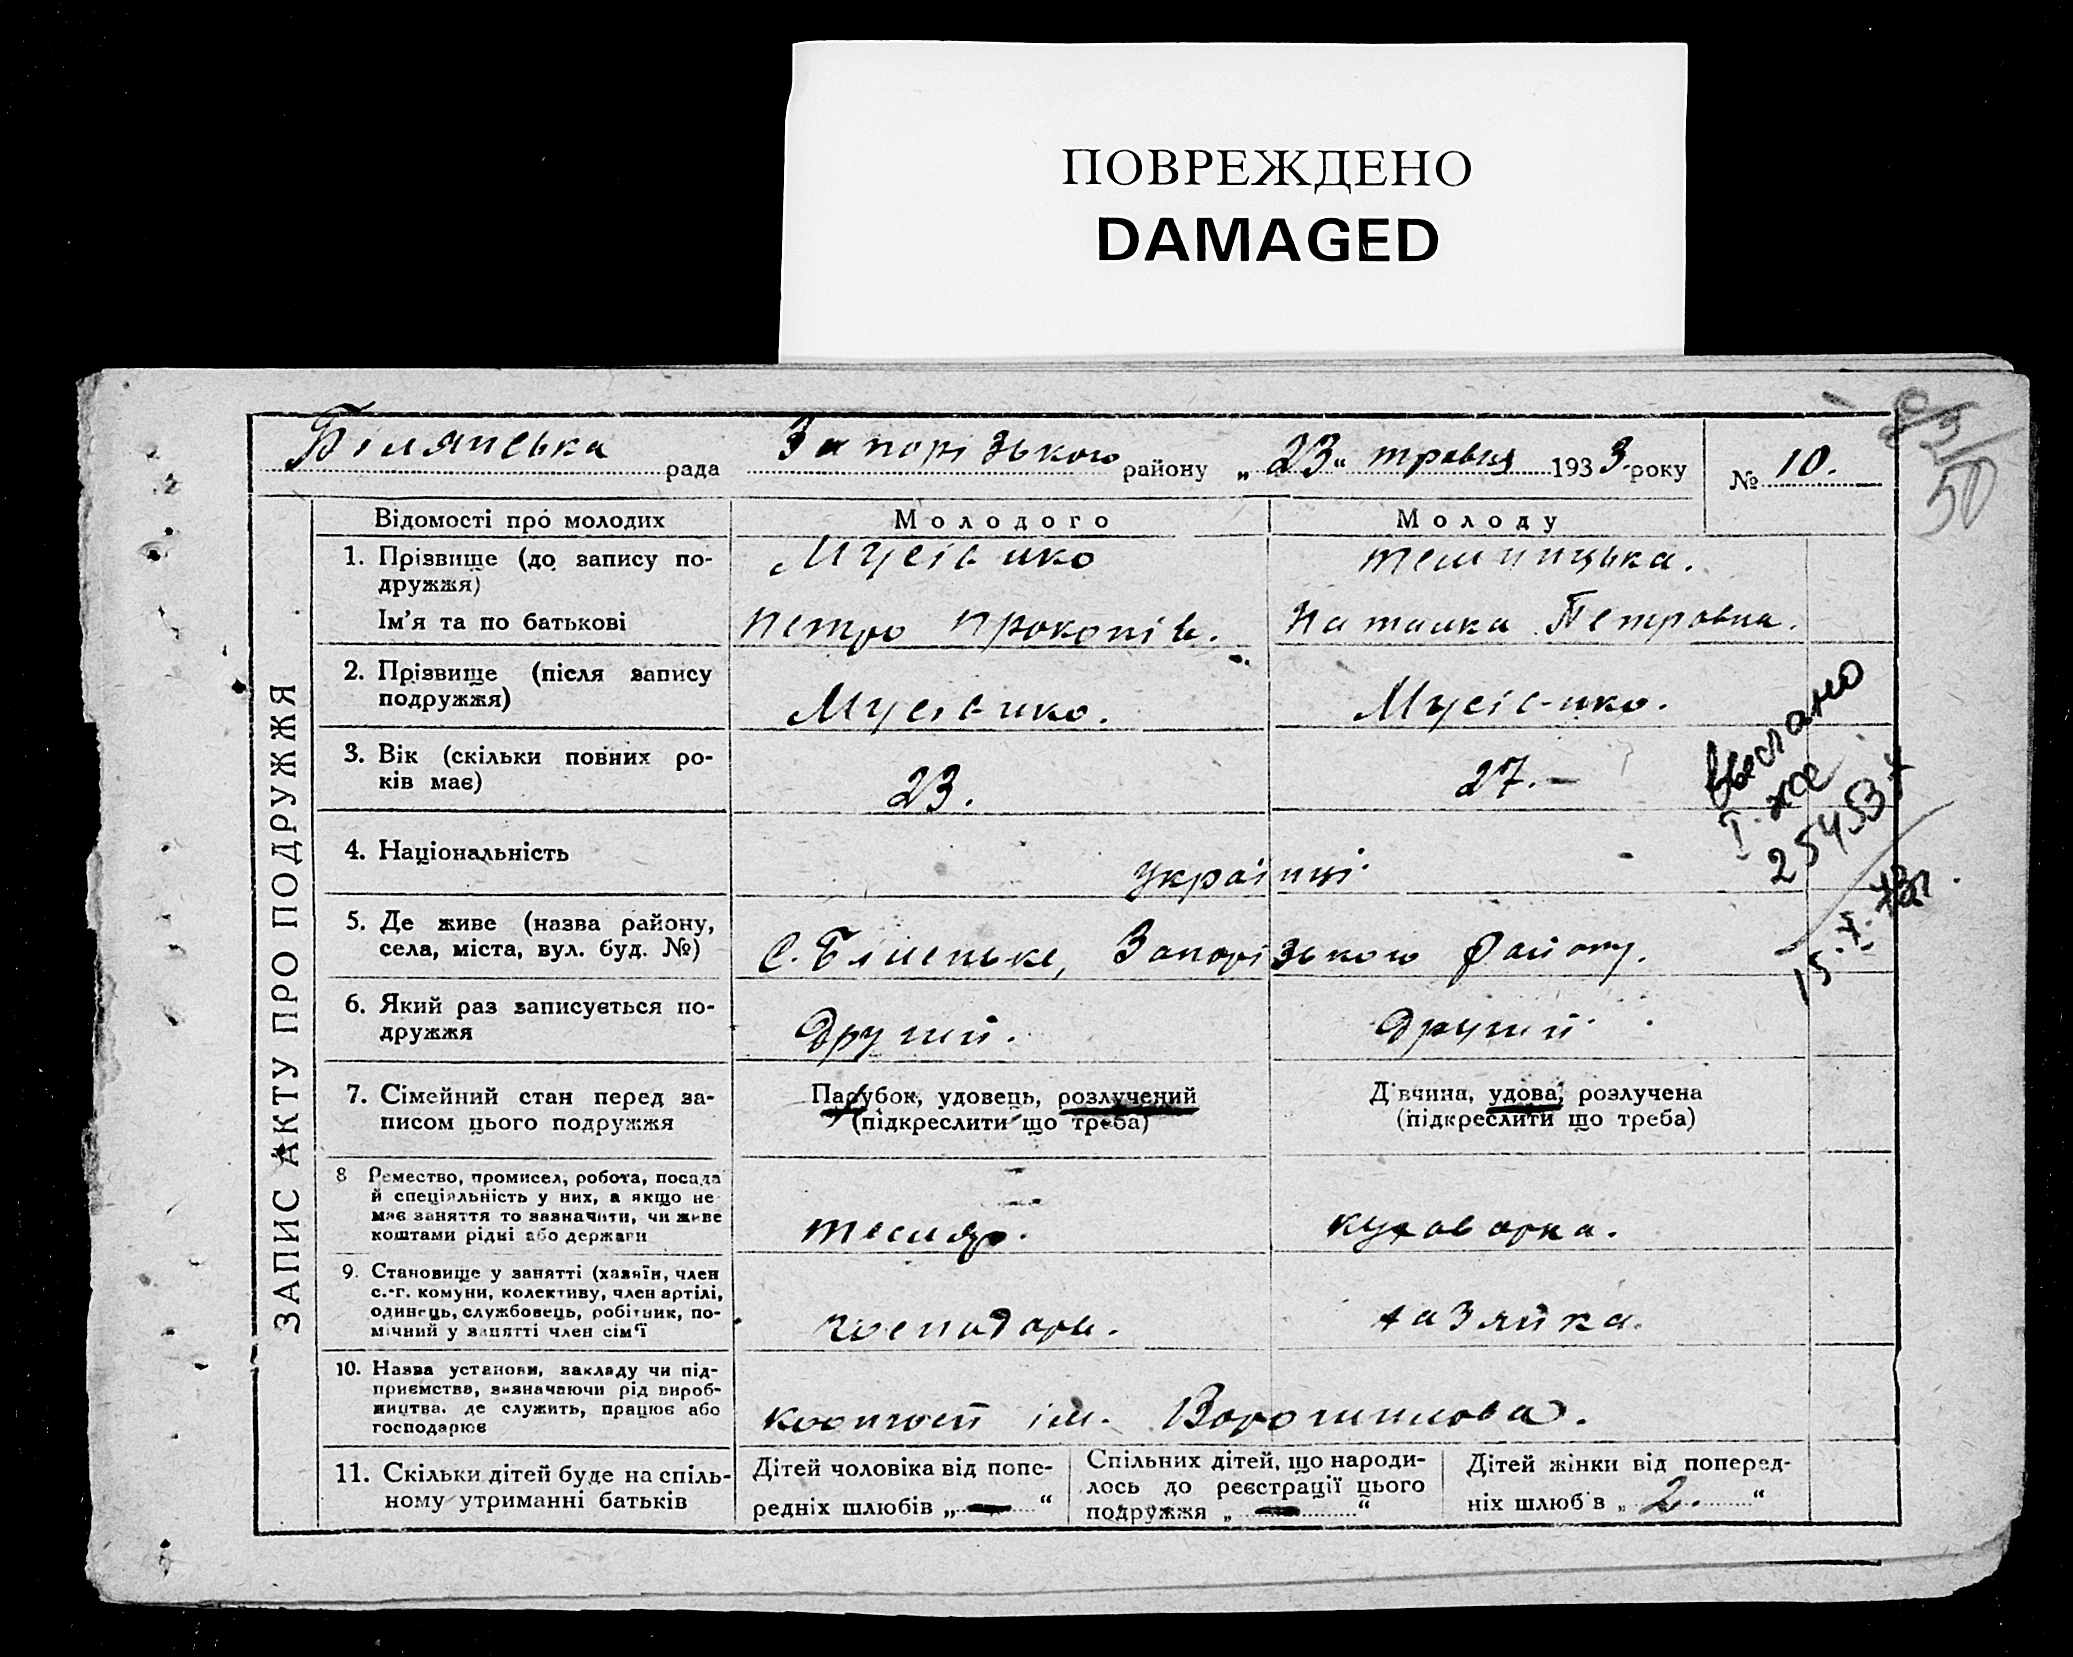 ПОВРЕЖДЕНО
DAMAGED
Білянська рада Запорізького району „23“ травня 1933 року № 10.
ЗАПИС АКТУ ПРО ПОДРУЖЖЯ
Відомості про молодих Молодого Молоду
1. Прізвище (до запису по-
дружжя)
Мусієнко
Ім'я та по батькові
Петро Прокопів. Наталка Петровна.
2. Прізвище (після запису
подружжя)
Мусієнко. Мусієнко.
3. Вік (скільки повних ро-
ків має)
23. 27.-
4. Національність
Українці
5. Де живе (назва району,
села, міста, вул. буд. №)
с. Біленьке, Запорізького району.
6. Який раз записується по-
дружжя
Другий. Другий
7. Сімейний стан перед за-
писом цього подружжя
Парубок, удовець, розлучений
(підкреслити що треба)
Дівчина, удова, розлучена
(підкреслити що треба)
8 Ремество, промисел, робота, посада
й спеціяльність у них, а якщо не
має заняття то зазначити, чи живе
коштами рідні або держави
тесляр. куховарка.
9. Становище у занятті (хазяїн, член
с.-г. комуни, колективу, член артілі,
одинець, службовець, робітник, по-
мічний у занятті член сім'ї
господарь. хазяйка.
10. Назва установи, закладу чи під-
приємства, зазначаючи рід вироб-
ництва, де служить, працює або
господарює
колгосп ім. Ворошилова.
11. Скільки дітей буде на спіль-
ному утриманні батьків
Дітей чоловіка від попе-
редніх шлюбів „ — “
Спільних дітей, що народи-
лось до реєстрації цього
подружжя „ — “
Дітей жінки від поперед-
ніх шлюбів „ 2. “
Выслано
254537
15.X.73г.